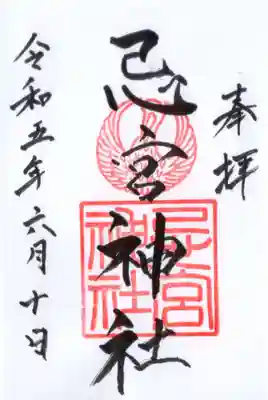 奉拝
忌宮神社
忌宮
神社
令和五年六月十日